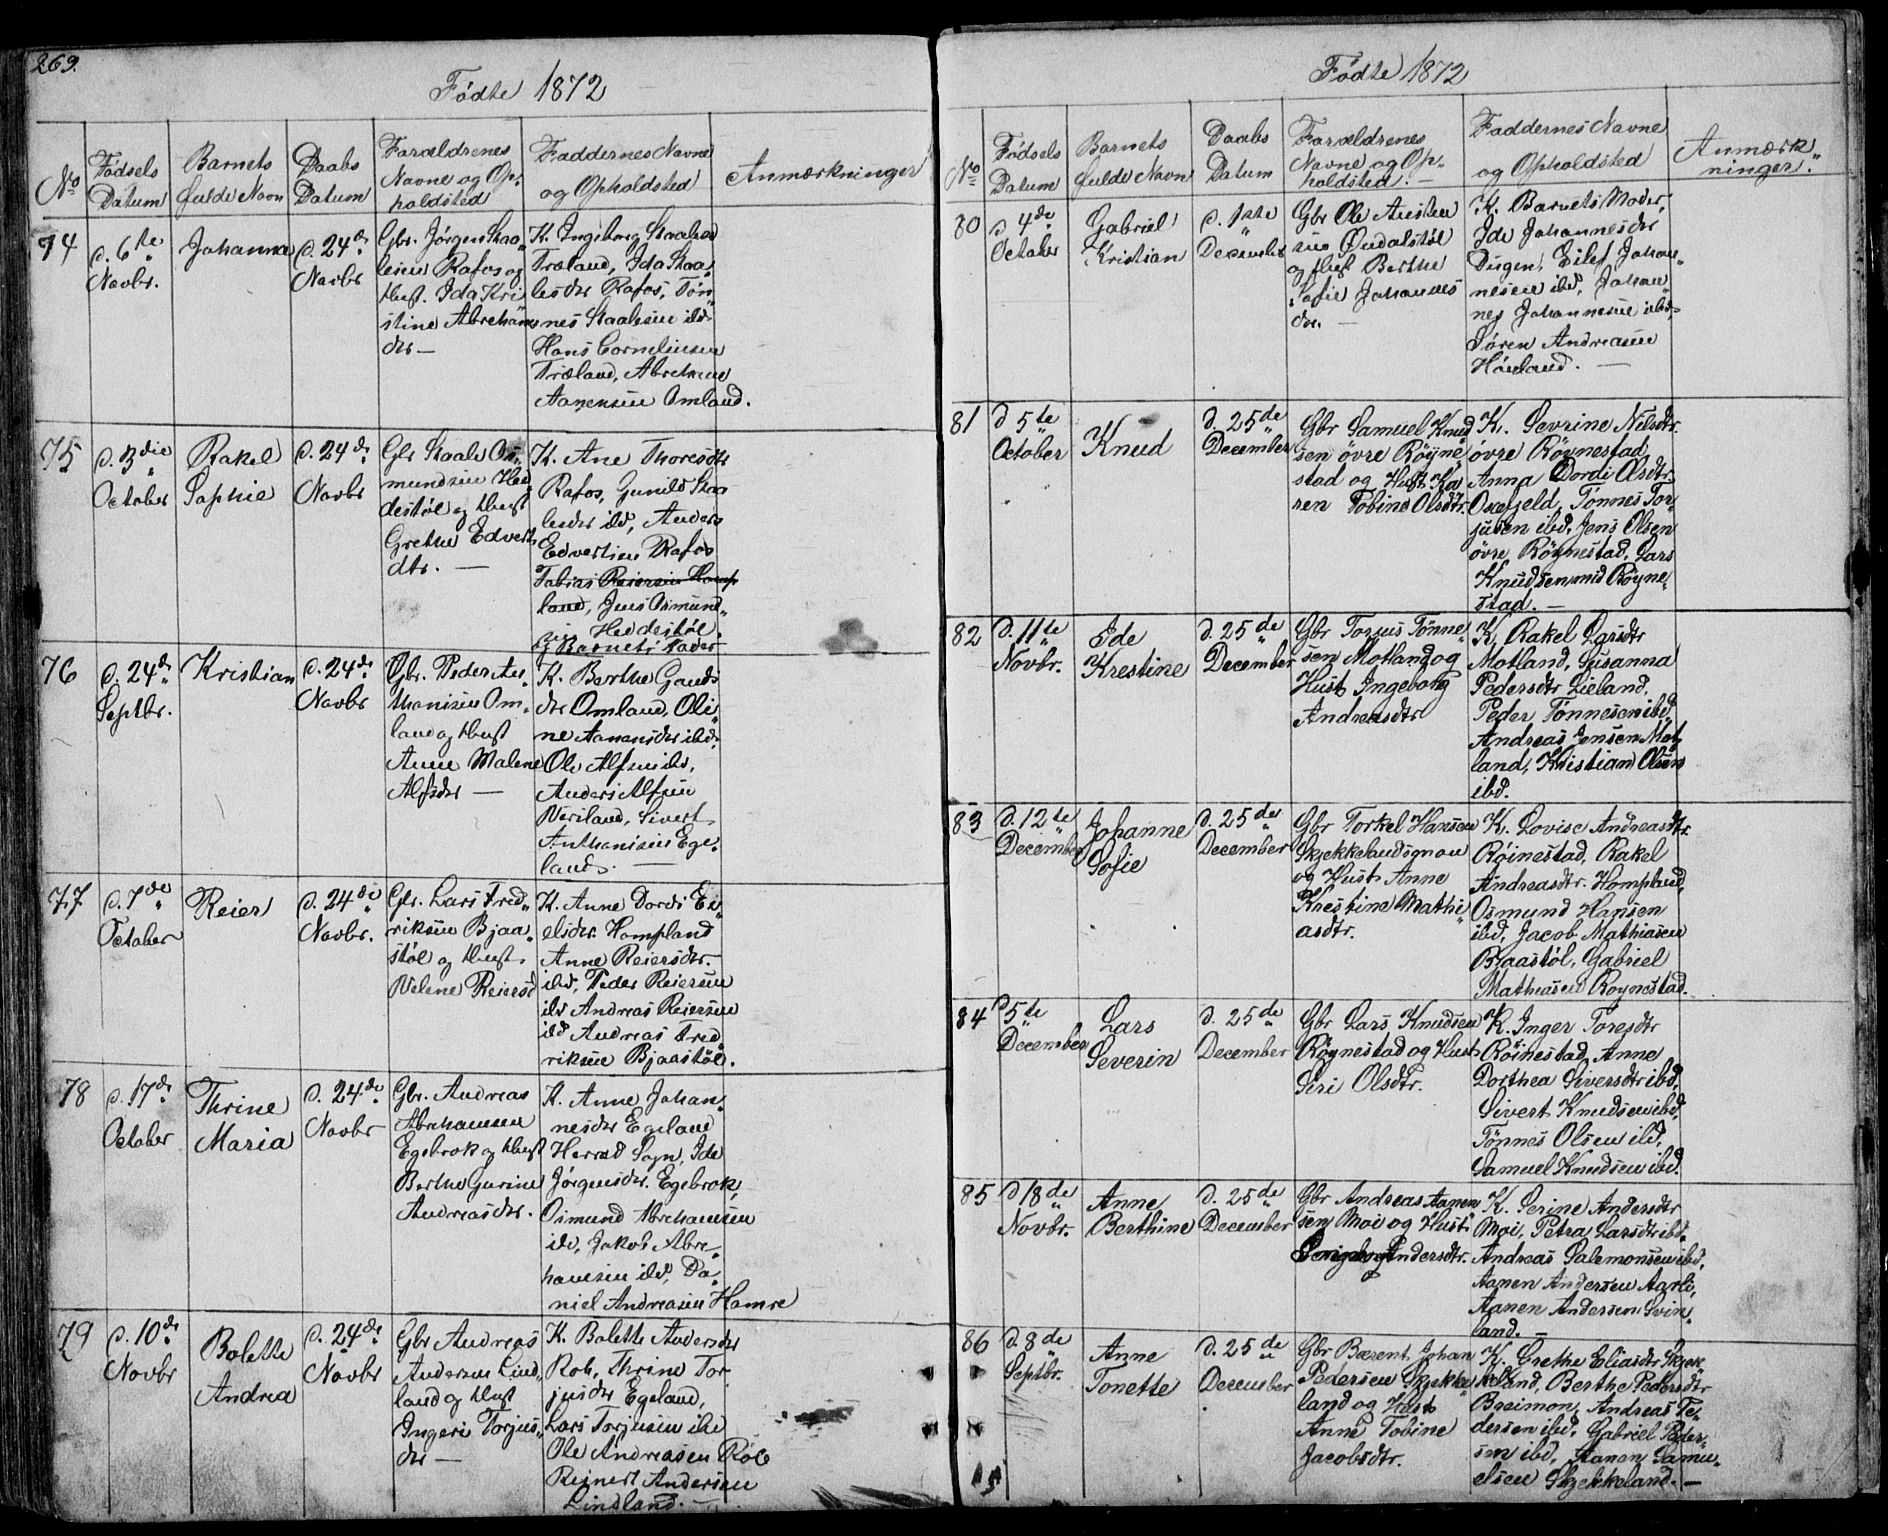 269.
Fødte 1872
No
Fødsels
Datum
Barnets
fulde Navn
Daabs
Datum
Forældrenes
Navne og Op-
holdsted
Faddernes Navne
og Opholdsted
Anmærkninger
74
d. 6te
Novbr.
Johanna
d. 24de
Novbr
Gbr. Jørgen Staa-
lesen Rafos og
Hust. Ida Kri
stine Abreham
dtr —
K. Ingeborg Staalesd
Træland, Ida Staa-
lesdtr Rafos, Tøn-
nes Staalesen ibd
Hans Corneliusen
Træland, Abreham
Aanensen Omland.
75
d. 3die
October
Rakel
Sophie
d. 24de
Novbr
Gbr Staale Os-
mundsen Hed
destøl og Hust
Grethe Edverts
dtr. —
K. Ane Thoresdtr
Rafos, Gunild Staa
lesdtr ibd, Anders
Edvertsen Rafos
Tobias Reiersen Homp
land, Jens Osmund-
sen Heddestøl.
og Barnets Fader
76
d. 24de
Septbr.
Kristian
d. 24de
Novbr
Gbr. Peder An-
thonisen Om-
land og Hust
Anne Malene
Alfsdtr —
K. Berthe Gunds
dtr Omland, Oli-
ne Aanensdtr ibd,
Ole Alfsen ibd,
Anders Alfsen
Versland, Sivert
Anthonisen Ege-
land. —
77
d. 7de
October
Reier
d. 24de
Novbr.
Gbr. Lars Fred-
riksen Bjaa-
støl og Hust.
Velene Reiersd
K. Anne Dordi Ei-
elsdtr. Hompland
Anne Reiersdtr.
ibd, Peder Reiersen
ibd Andreas Reiersen
ibd Andreas Fred
riksen Bjaastøl.
78
d. 17de
October
Thrine
Maria
d. 24de
Novbr
Gbr. Andreas
Abrahamsen
Egebrok og Hust
Berthe Gurine
Andreasdtr.
K. Anne Johan-
nesdtr Egeland
Herred Sogn, Ide
Jørgensdtr. Egebrok,
Osmund Abrehamsen
ibd, Jakob Abre-
hamsen ibd, Da-
niel Andreasen Hamre
79
d. 10de
Novbr
Bolette
Andrea
d. 24de
Novbr
Gbr Andreas
Andersen Lind-
land og Hust
Ingeri Torjus-
dtr —
K. Bolette Andersdtr
Rob, Thrine Tor-
jusdtr Egeland,
Lars Torjusen ibd
Ole Andreasen Rob
Reinert Andersen
Lindland. —
Fødte 1872
No
Fødsels
Datum
Barnets
fulde Navn
Daabs
Datum
Forældrenes
Navne og Op-
holdsted. —
Faddernes Navne
og Opholdsted
Anmærk
ninger.
80
d 4de
October
Gabriel
Kristian
d. 1ste
December
Gbr Ole Austen
sen Øndalstøl
og Hust Berthe
Sofie Johannes
dtr. —
K. Barnets Moder,
Ide Johannesdtr
Dugen, Eilef Johan-
nesen ibd, Johan
nes Johannesen ibd
Søren Andreasen
Houland. —
81
d 5te
October
Knud
d. 25de
December
Gbr Samuel Knud
sen øvre Røyne
stad og Hust Ka
ren Tobine Olsdtr.
K. Sevrine Nilsdtr.
øvre Røynestad,
Anna Dordi Olsdtr.
Oxefjeld, Tønnes Tor-
jusen ibd, Jens Olsen
øvre Røynestad, Lars
Knudsen mid Røyne-
stad. —
82
d. 11te
Novbr.
Ide
Krestine
d. 25de
December
Gbr Torjus Tønne-
sen Motland og
Hust Ingeborg
Andreasdtr
K. Rakel Larsdtr
Motland, Susanna
Pedersdtr Lieland,
Peder Tønnesen ibd,
Andreas Jensen Mot
land, Kristian Olsen
ibd.
83
d. 12te
December
Johanne
Sofie
d. 25de
December
Gbr Torkel Hansen
Skjekkelandsgnau
og Hust Anne
Krestine Mathi-
asdtr.
K. Lovise Andreasdtr.
Røinestad, Rakel
Andreasdtr. Hompland,
Osmund Hansen
ibd, Jacob Mathiasen
Bjaastøl, Gabriel
Matheasen Røynestad.
84
d 5te
December
Lars
Severin
d. 25de
December
Gbr Lars Knudsen
Røynestad og Hust
Siri Olsdtr.
K. Inger Toresdtr
Røinestad, Anne
Dorthea Siversdtr ibd,
Sivert Knudsen ibd,
Tønnes Olsen ibd,
Samuel Knudsen ibd.
85
d 18de
Novbr.
Anne
Berthine
d. 25de
December
Gbr Andreas Aanen
sen Moi og Hust
Andersdtr.
K. Serine Andersdtr
Moi, Petra Larsdtr ibd.
Andreas Salemonsen ibd,
Aanen Andersen Aarli,
Aanen Andersen Svin
land. —
86
d. 8de
Septbr.
Anne
Tonette
d. 25de
December
Gbr Bærent Johan
Pedersen Skjekke
land og Hust
Anne Tobine
Jacobsdtr.
K. Grethe Eliasdtr Skjek
keland, Berthe Pedersdtr
Breimon, Andreas Pe-
dersen ibd, Gabriel Peder-
sen ibd, Aanen Samu-
elsen Skjekkeland. —